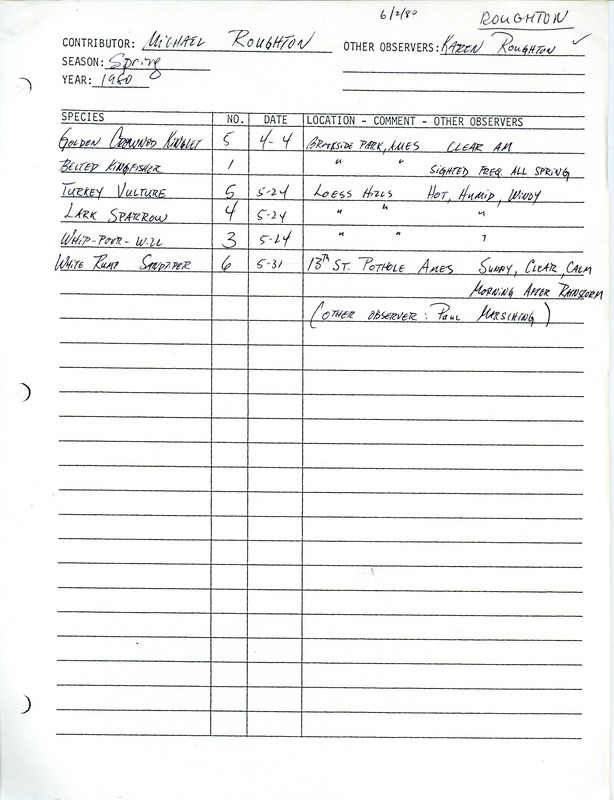 6/2/80 ROUGHTON
CONTRIBUTOR: MICHAEL ROUGHTON OTHER OBSERVERS: KAREN ROUGHTON ✓
SEASON: Spring
YEAR: 1980
SPECIES NO. DATE LOCATION - COMMENT - OTHER OBSERVERS
GOLDEN CROWNED KINGLET 5 4-4 BROOKSIDE PARK, AMES CLEAR AM
BELTED KINGFISHER 1 " " SIGHTED FREQ. ALL SPRING
TURKEY VULTURE 5 5-24 LOESS HILLS HOT, HUMID, WINDY
LARK SPARROW 4 5-24 " " "
WHIP-POUR-WILL 3 5-24 " " "
WHITE RUMP SANDPIPER 6 5-31 13TH ST. POTHOLE AMES SUNNY, CLEAR, CALM
MORNING AFTER RAINSTORM
(OTHER OBSERVER: PAUL MARSCHING)